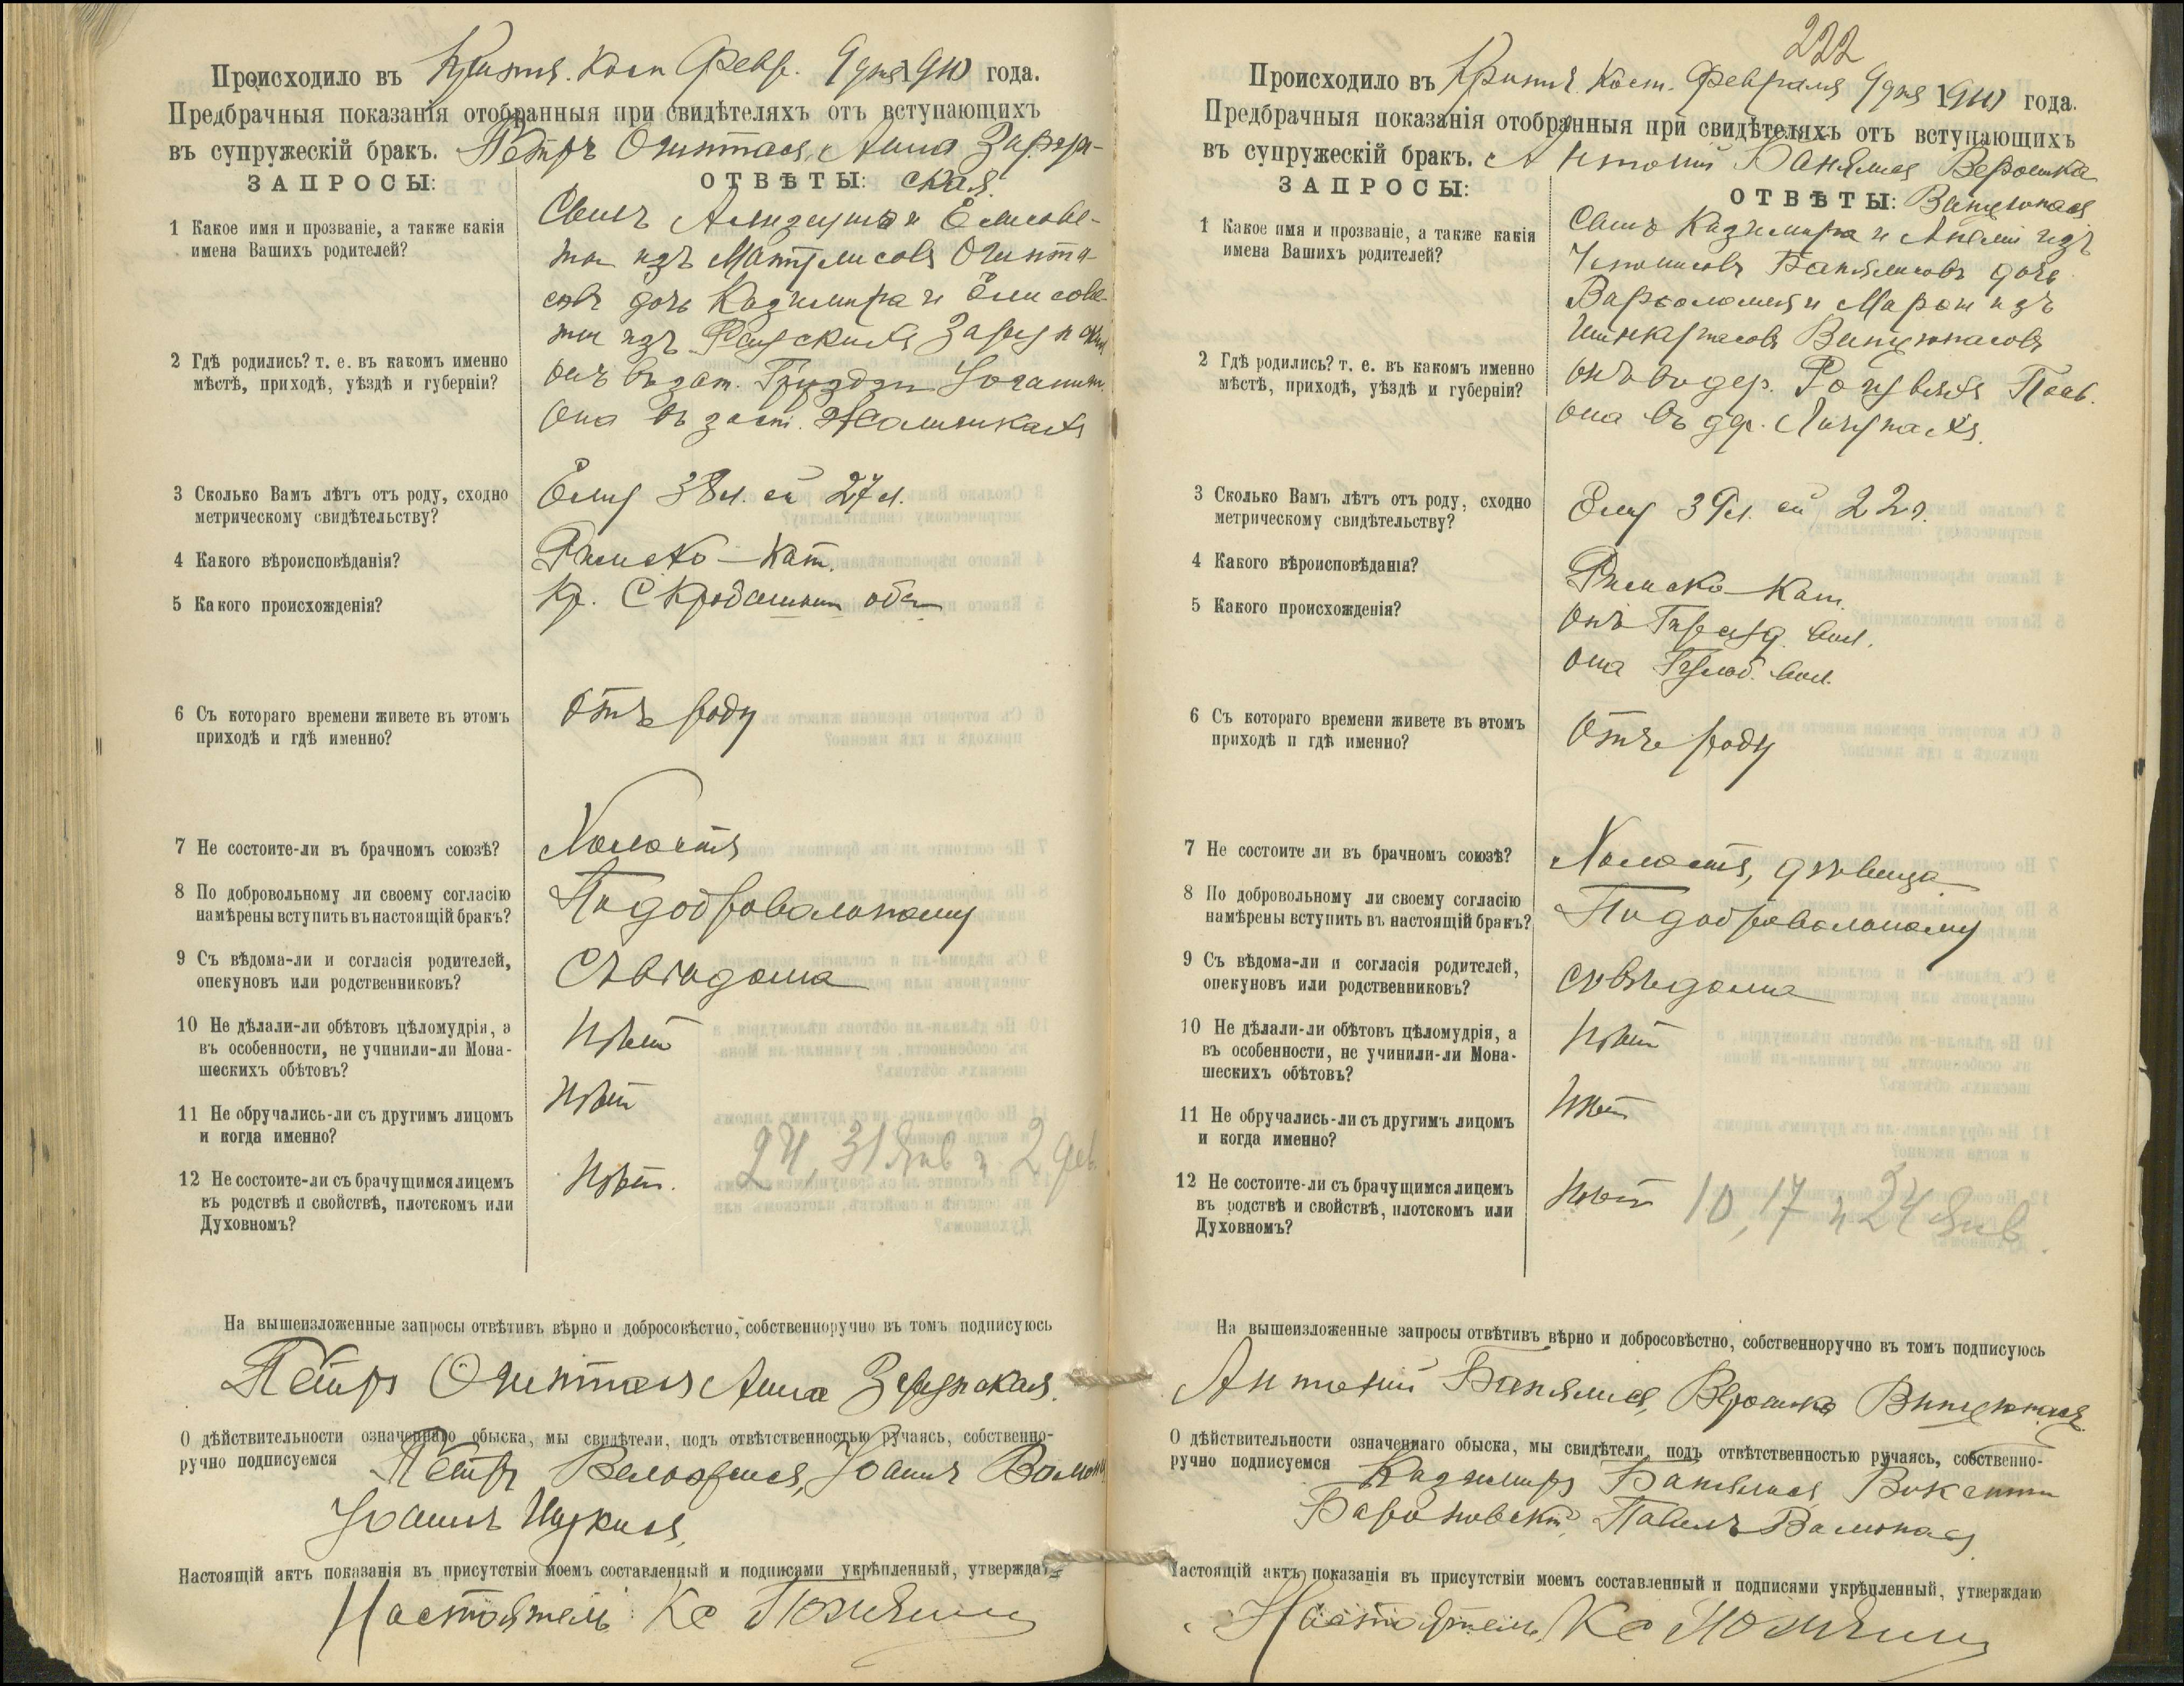 Происходило въ Февр. 9 дня 1910 года.
Предбрачныя показанія отобранныя при свидѣтеляхъ отъ вступающихъ
въ супружескій бракъ. Петръ Анна
ЗАПРОСЫ:
ОТВѢТЫ: ская.
1 Какое имя и прозваніе, а также какія
имена Вашихъ родителей?
и Елисаве-
ты изъ
дочь Казимира и Елисаве-
ты изъ
2 Гдѣ родились? т. е. въ какомъ именно
мѣстѣ, приходѣ, уѣздѣ и губерніи?
онъ въ
она въ заст.
3 Сколько Вамъ лѣтъ отъ роду, сходно
метрическому свидѣтельству?
Ему 38 л. ей 27 л.
4 Какого вѣроисповѣданія?
Римско-Кат.
5 Какого происхожденія?
Кр.
6 Съ котораго времени живете въ этомъ
приходѣ и гдѣ именно?
Отъ роду
7 Не состоите-ли въ брачномъ союзѣ?
Холостъ
8 По добровольному ли своему согласію
намѣрены вступить въ настоящій бракъ?
По добровольному
9 Съ вѣдома-ли и согласія родителей,
опекуновъ или родственниковъ?
Съ вѣдома
10 Не дѣлали-ли обѣтовъ цѣломудрія, а
въ особенности, не учинили-ли Мона-
шескихъ обѣтовъ?
Нѣтъ
11 Не обручались-ли съ другимъ лицомъ
и когда именно?
Нѣтъ
12 Не состоите-ли съ брачущимся лицемъ
въ родствѣ и свойствѣ, плотскомъ или
Духовномъ?
Нѣтъ.
24, 31 Янв и 2 фев.
На вышеизложенные запросы отвѣтивъ вѣрно и добросовѣстно, собственноручно въ томъ подписуюсь
Петръ Анна
О дѣйствительности означеннаго обыска, мы свидѣтели, подъ отвѣтственностью ручаясь, собственно-
ручно подписуемся Петръ Іоаннъ
Іоаннъ
Настоящій актъ показанія въ присутствіи моемъ составленный и подписами укрѣпленный, утверждаю
Настоятель Кс
222
Происходило въ Февраля 9 дня 1910 года.
Предбрачныя показанія отобранныя при свидѣтеляхъ отъ вступающихъ
въ супружескій бракъ. Антоній Вероника
ЗАПРОСЫ:
ОТВѢТЫ:
1 Какое имя и прозваніе, а также какія
имена Вашихъ родителей?
Сынъ Казимира и изъ
дочь
Варѳоломея и изъ
2 Гдѣ родились? т. е. въ какомъ именно
мѣстѣ, приходѣ, уѣздѣ и губерніи?
онъ въ дер.
она въ дер.
3 Сколько Вамъ лѣтъ отъ роду, сходно
метрическому свидѣтельству?
Ему 39 л. ей 22 г.
4 Какого вѣроисповѣданія?
Римско-Кат.
5 Какого происхожденія?
Онъ вол.
она вол.
6 Съ котораго времени живете въ этомъ
приходѣ и гдѣ именно?
Отъ роду
7 Не состоите ли въ брачномъ союзѣ?
Холостъ, дѣвица
8 По добровольному ли своему согласію
намѣрены вступить въ настоящій бракъ?
По добровольному
9 Съ вѣдома-ли и согласія родителей,
опекуновъ или родственниковъ?
Съ вѣдома
10 Не дѣлали-ли обѣтовъ цѣломудрія, а
въ особенности, не учинили-ли Мона-
шескихъ обѣтовъ?
Нѣтъ
11 Не обручались-ли съ другимъ лицомъ
и когда именно?
Нѣтъ
12 Не состоите-ли съ брачущимся лицемъ
въ родствѣ и свойствѣ, плотскомъ или
Духовномъ?
Нѣтъ
10, 17 и 24 Янв.
На вышеизложенные запросы отвѣтивъ вѣрно и добросовѣстно, собственноручно въ томъ подписуюсь
Антоній Вероника
О дѣйствительности означеннаго обыска, мы свидѣтели, подъ отвѣтственностью ручаясь, собственно-
ручно подписуемся Казимиръ
Барановскій, Павелъ
Настоящій актъ показанія въ присутствіи моемъ составленный и подписями укрѣпленный, утверждаю
Настоятель Кс